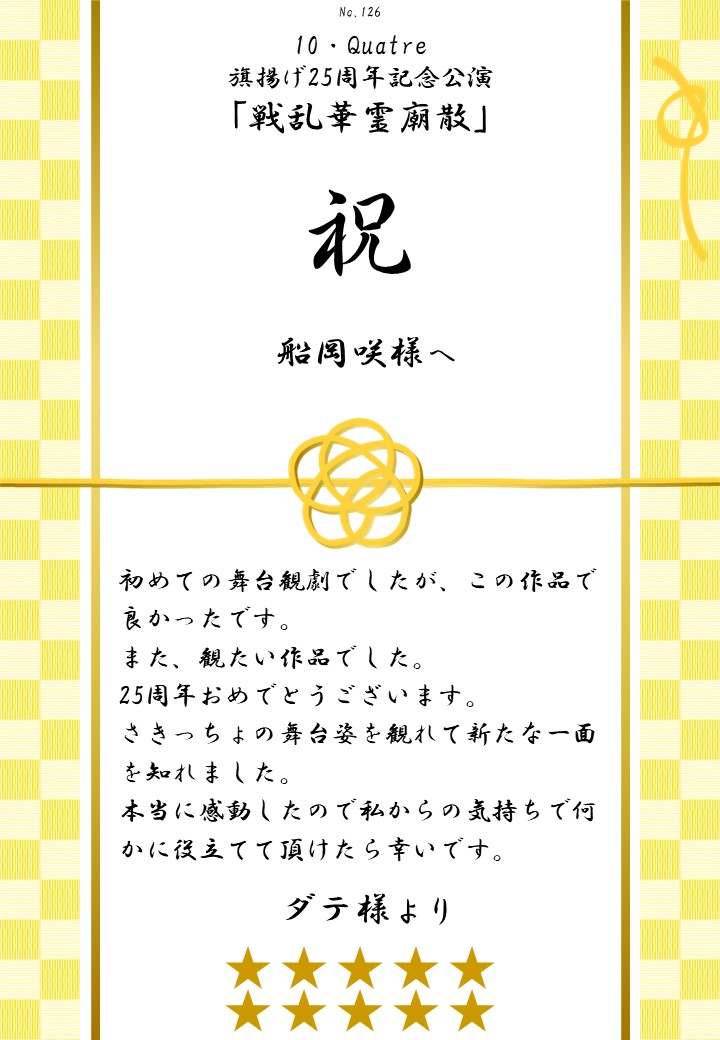 No.126
10・Quatre
旗揚げ25周年記念公演
「戦乱華霊廟散」
祝
船岡咲様へ
初めての舞台観劇でしたが、この作品で
良かったです。
また、観たい作品でした。
25周年おめでとうございます。
さきっちょの舞台姿を観れて新たな一面
を知れました。
本当に感動したので私からの気持ちで何
かに役立てて頂けたら幸いです。
ダテ様より
★★★★★
★★★★★